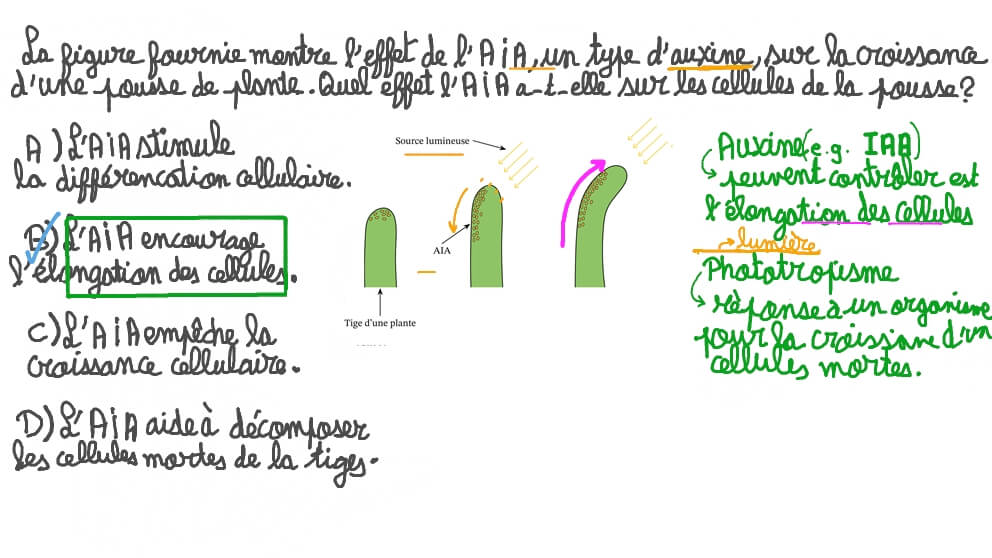 La figure fournie montre l'effet de l'AiA, un type d'auxine, sur la croissance
d'une pousse de plante. Quel effet l'AiA a-t-elle sur les cellules de la pousse?
A) L'AiA stimule
la différencation cellulaire.
B) L'AiA encourage
l'élongation des cellules.
C) L'AiA empêche la
croissance cellulaire.
D) L'AiA aide à décomposer
les cellules mortes de la tiges.
Source lumineuse
AIA
Tige d'une plante
Auxine (e.g. IAA)
peuvent contrôler est
l'élongation des cellules
lumière
Phototropisme
réponse à un organisme
pour la croissane d'un
cellules mortes.